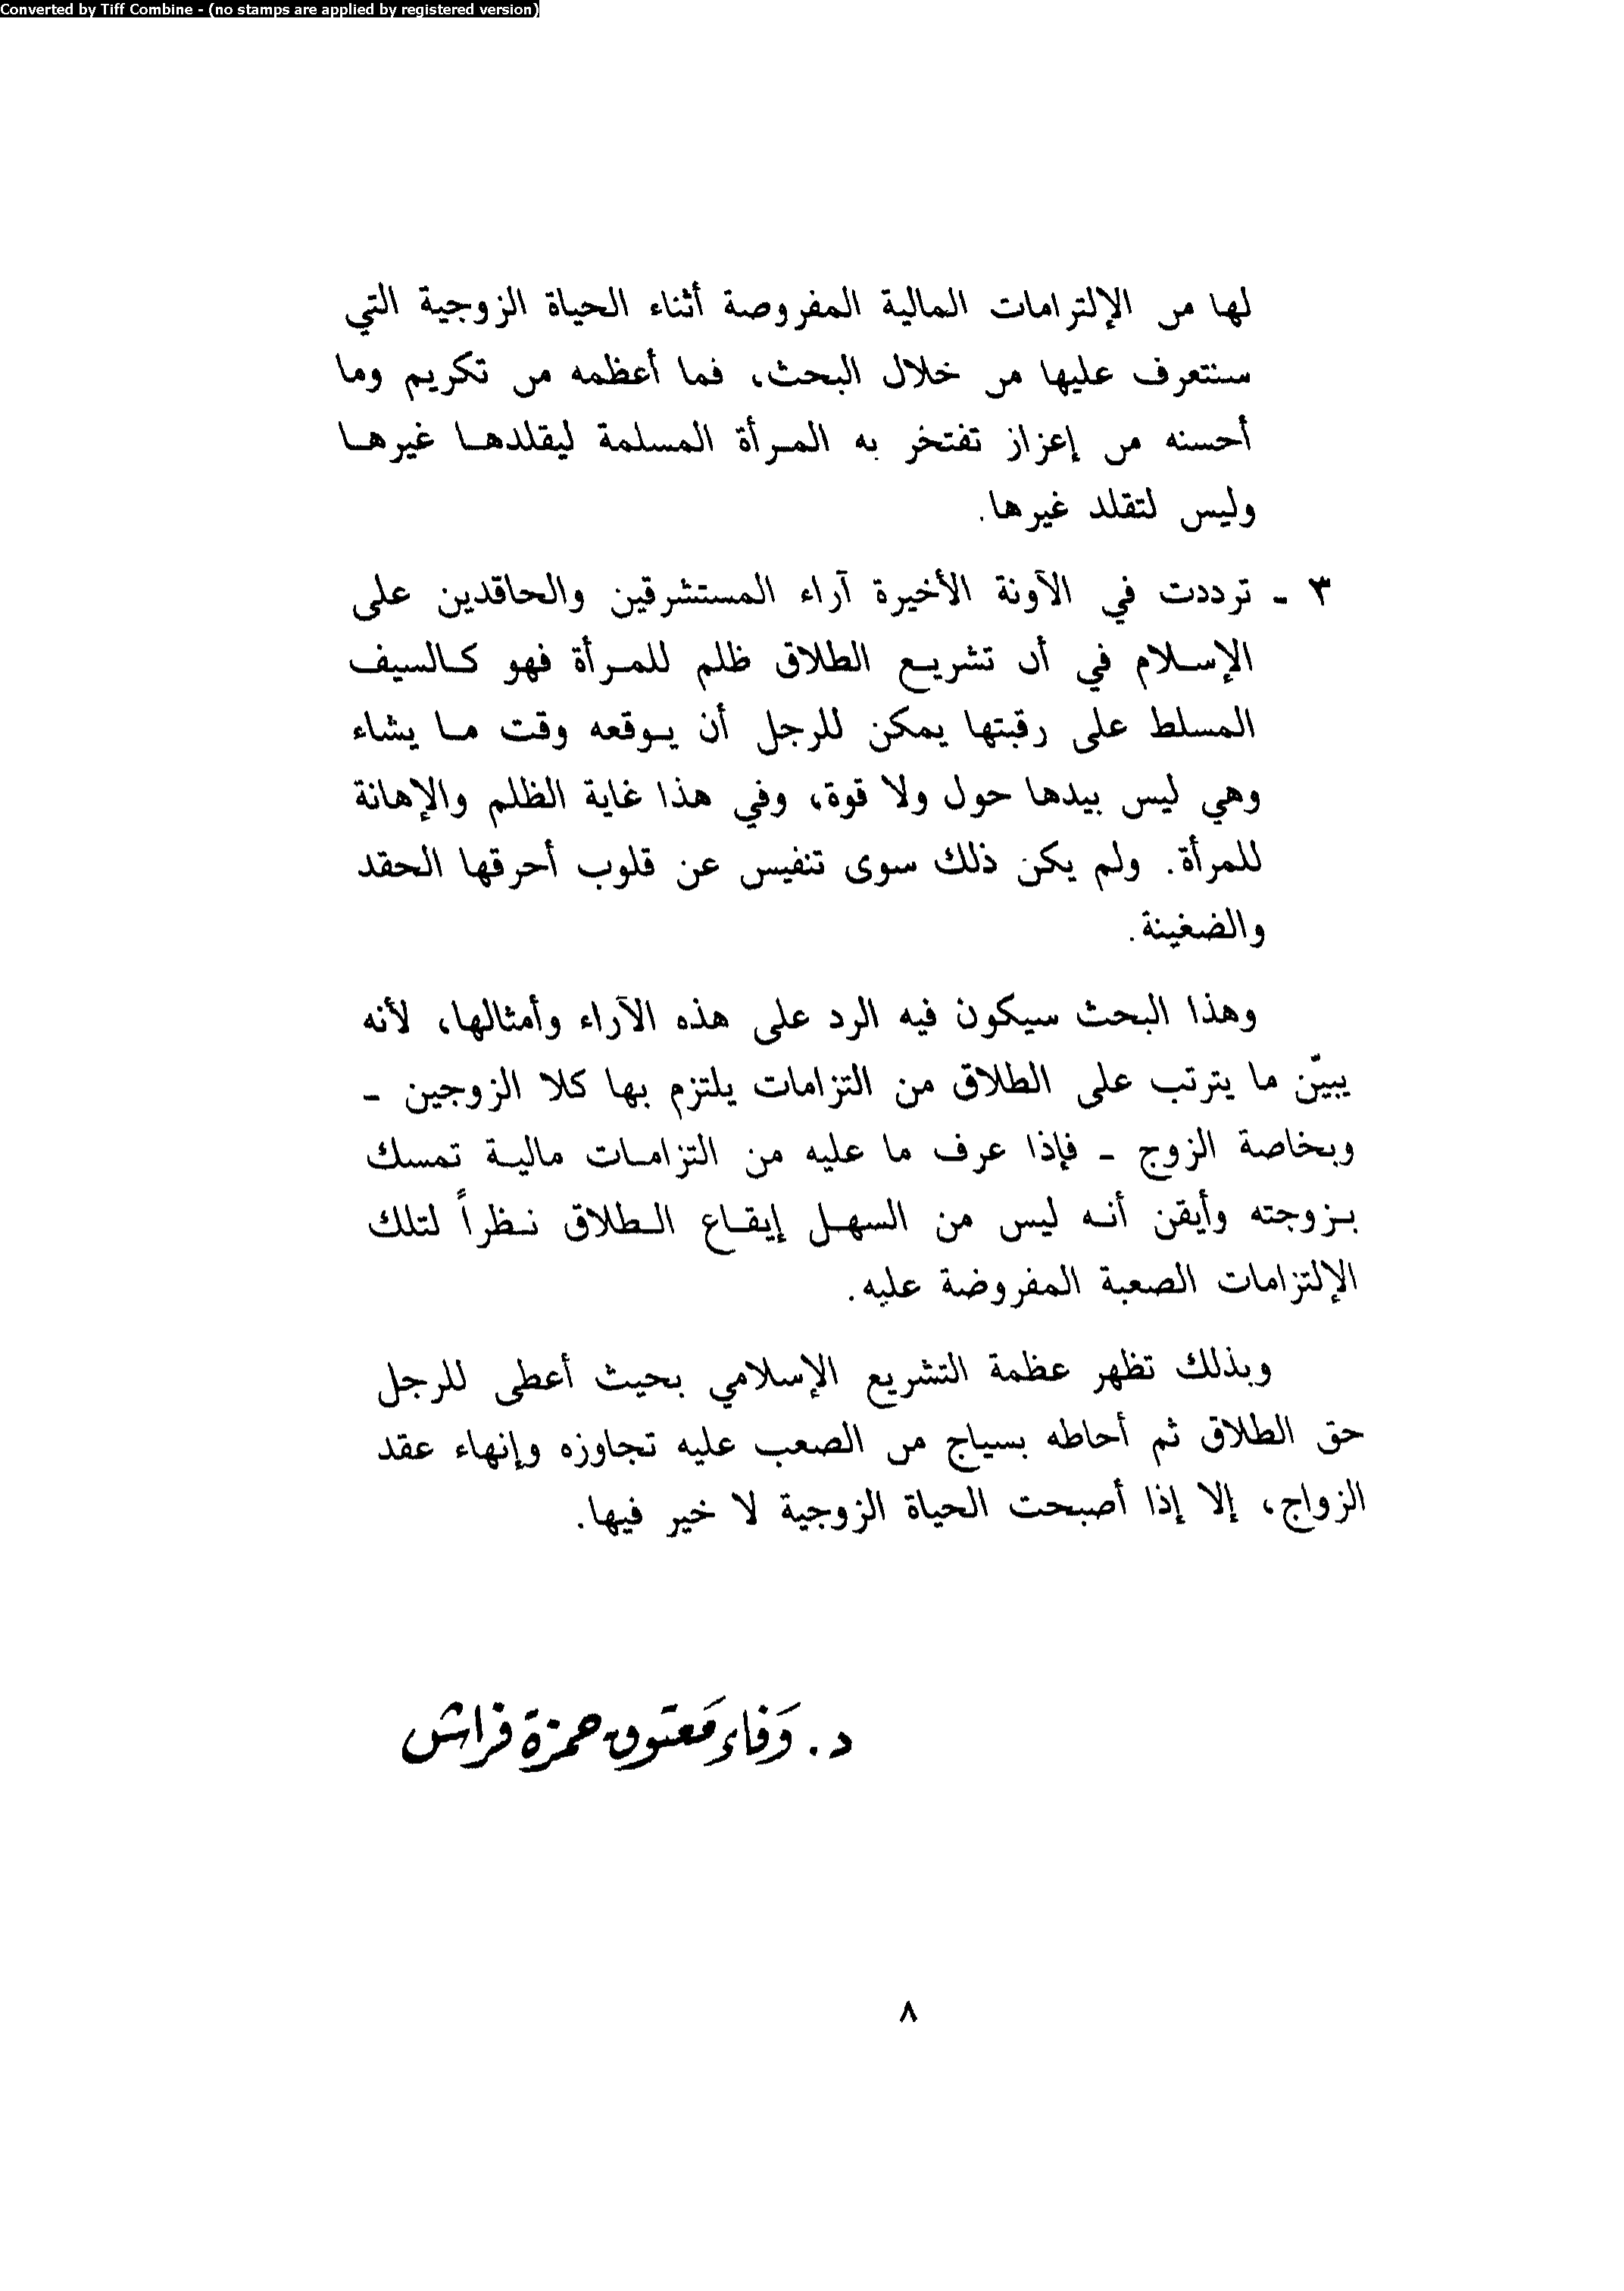 Converted by Tiff Combine - (no stamps are applied by registered version)
لها من الإلتزامات المالية المفروضة أثناء الحياة الزوجية التي
سنتعرف عليها من خلال البحث، فما أعظمه من تكريم وما
أحسنه من إعزاز تفتخر به المرأة المسلمة ليقلدها غيرها
وليس لتقلد غيرها.
٣ - ترددت في الآونة الأخيرة آراء المستشرقين والحاقدين على
الإسلام في أن تشريع الطلاق ظلم للمرأة فهو كالسيف
المسلط على رقبتها يمكن للرجل أن يوقعه وقت ما يشاء
وهي ليس بيدها حول ولا قوة، وفي هذا غاية الظلم والإهانة
للمرأة. ولم يكن ذلك سوى تنفيس عن قلوب أحرقها الحقد
والضغينة.
وهذا البحث سيكون فيه الرد على هذه الآراء وأمثالها، لأنه
يبيّن ما يترتب على الطلاق من التزامات يلتزم بها كلا الزوجين -
وبخاصة الزوج - فإذا عرف ما عليه من التزامات مالية تمسك
بزوجته وأيقن أنه ليس من السهل إيقاع الطلاق نظراً لتلك
الإلتزامات الصعبة المفروضة عليه.
وبذلك تظهر عظمة التشريع الإسلامي بحيث أعطى للرجل
حق الطلاق ثم أحاطه بسياج من الصعب عليه تجاوزه وإنهاء عقد
الزواج، إلا إذا أصبحت الحياة الزوجية لا خير فيها.
د. وَفاء مَعتوق حمزة فراش
٨